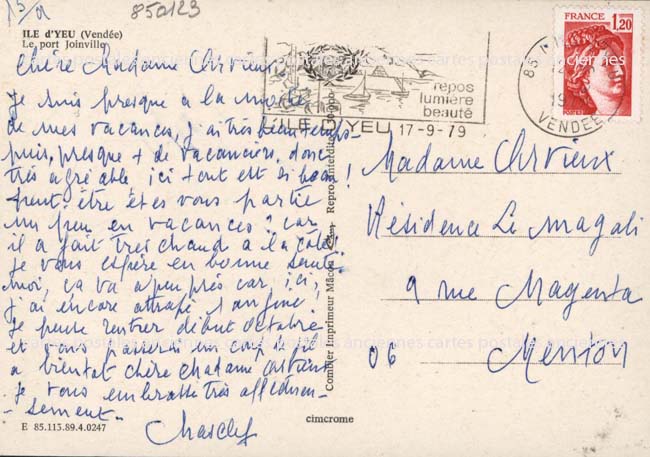 15/9
850123
ILE d'YEU (Vendée)
Le port Joinville
Chère Madame Arvieux
Je suis presque à la moitié
de mes vacances, j'ai très beau temps
puis, presque + de vacanciers, donc
très agréable, ici tout est si beau!
peut-être êtes vous partie
un peu en vacances? car
il a fait très chaud à la côte!
Je vous espère en bonne santé
moi, ça va à peu près car, ici,
j'ai encore attrapé 1 angine!
Je pense rentrer début octobre
et vous passerai un coup de fil
à bientôt chère Madame Arvieux
je vous embrasse très affectueu-
-sement-
E 85.113.89.4.0247
cimcrome
Combier Imprimeur Mâcon
Repro. interdite
repos
lumière
beauté
L'ILE D'YEU 17-9-79
FRANCE
1,20
POSTES
VENDÉE
Madame Arvieux
Résidence Le Magali
9 rue Magenta
06 Menton
cartes postales anciennes cartes postales anciennes